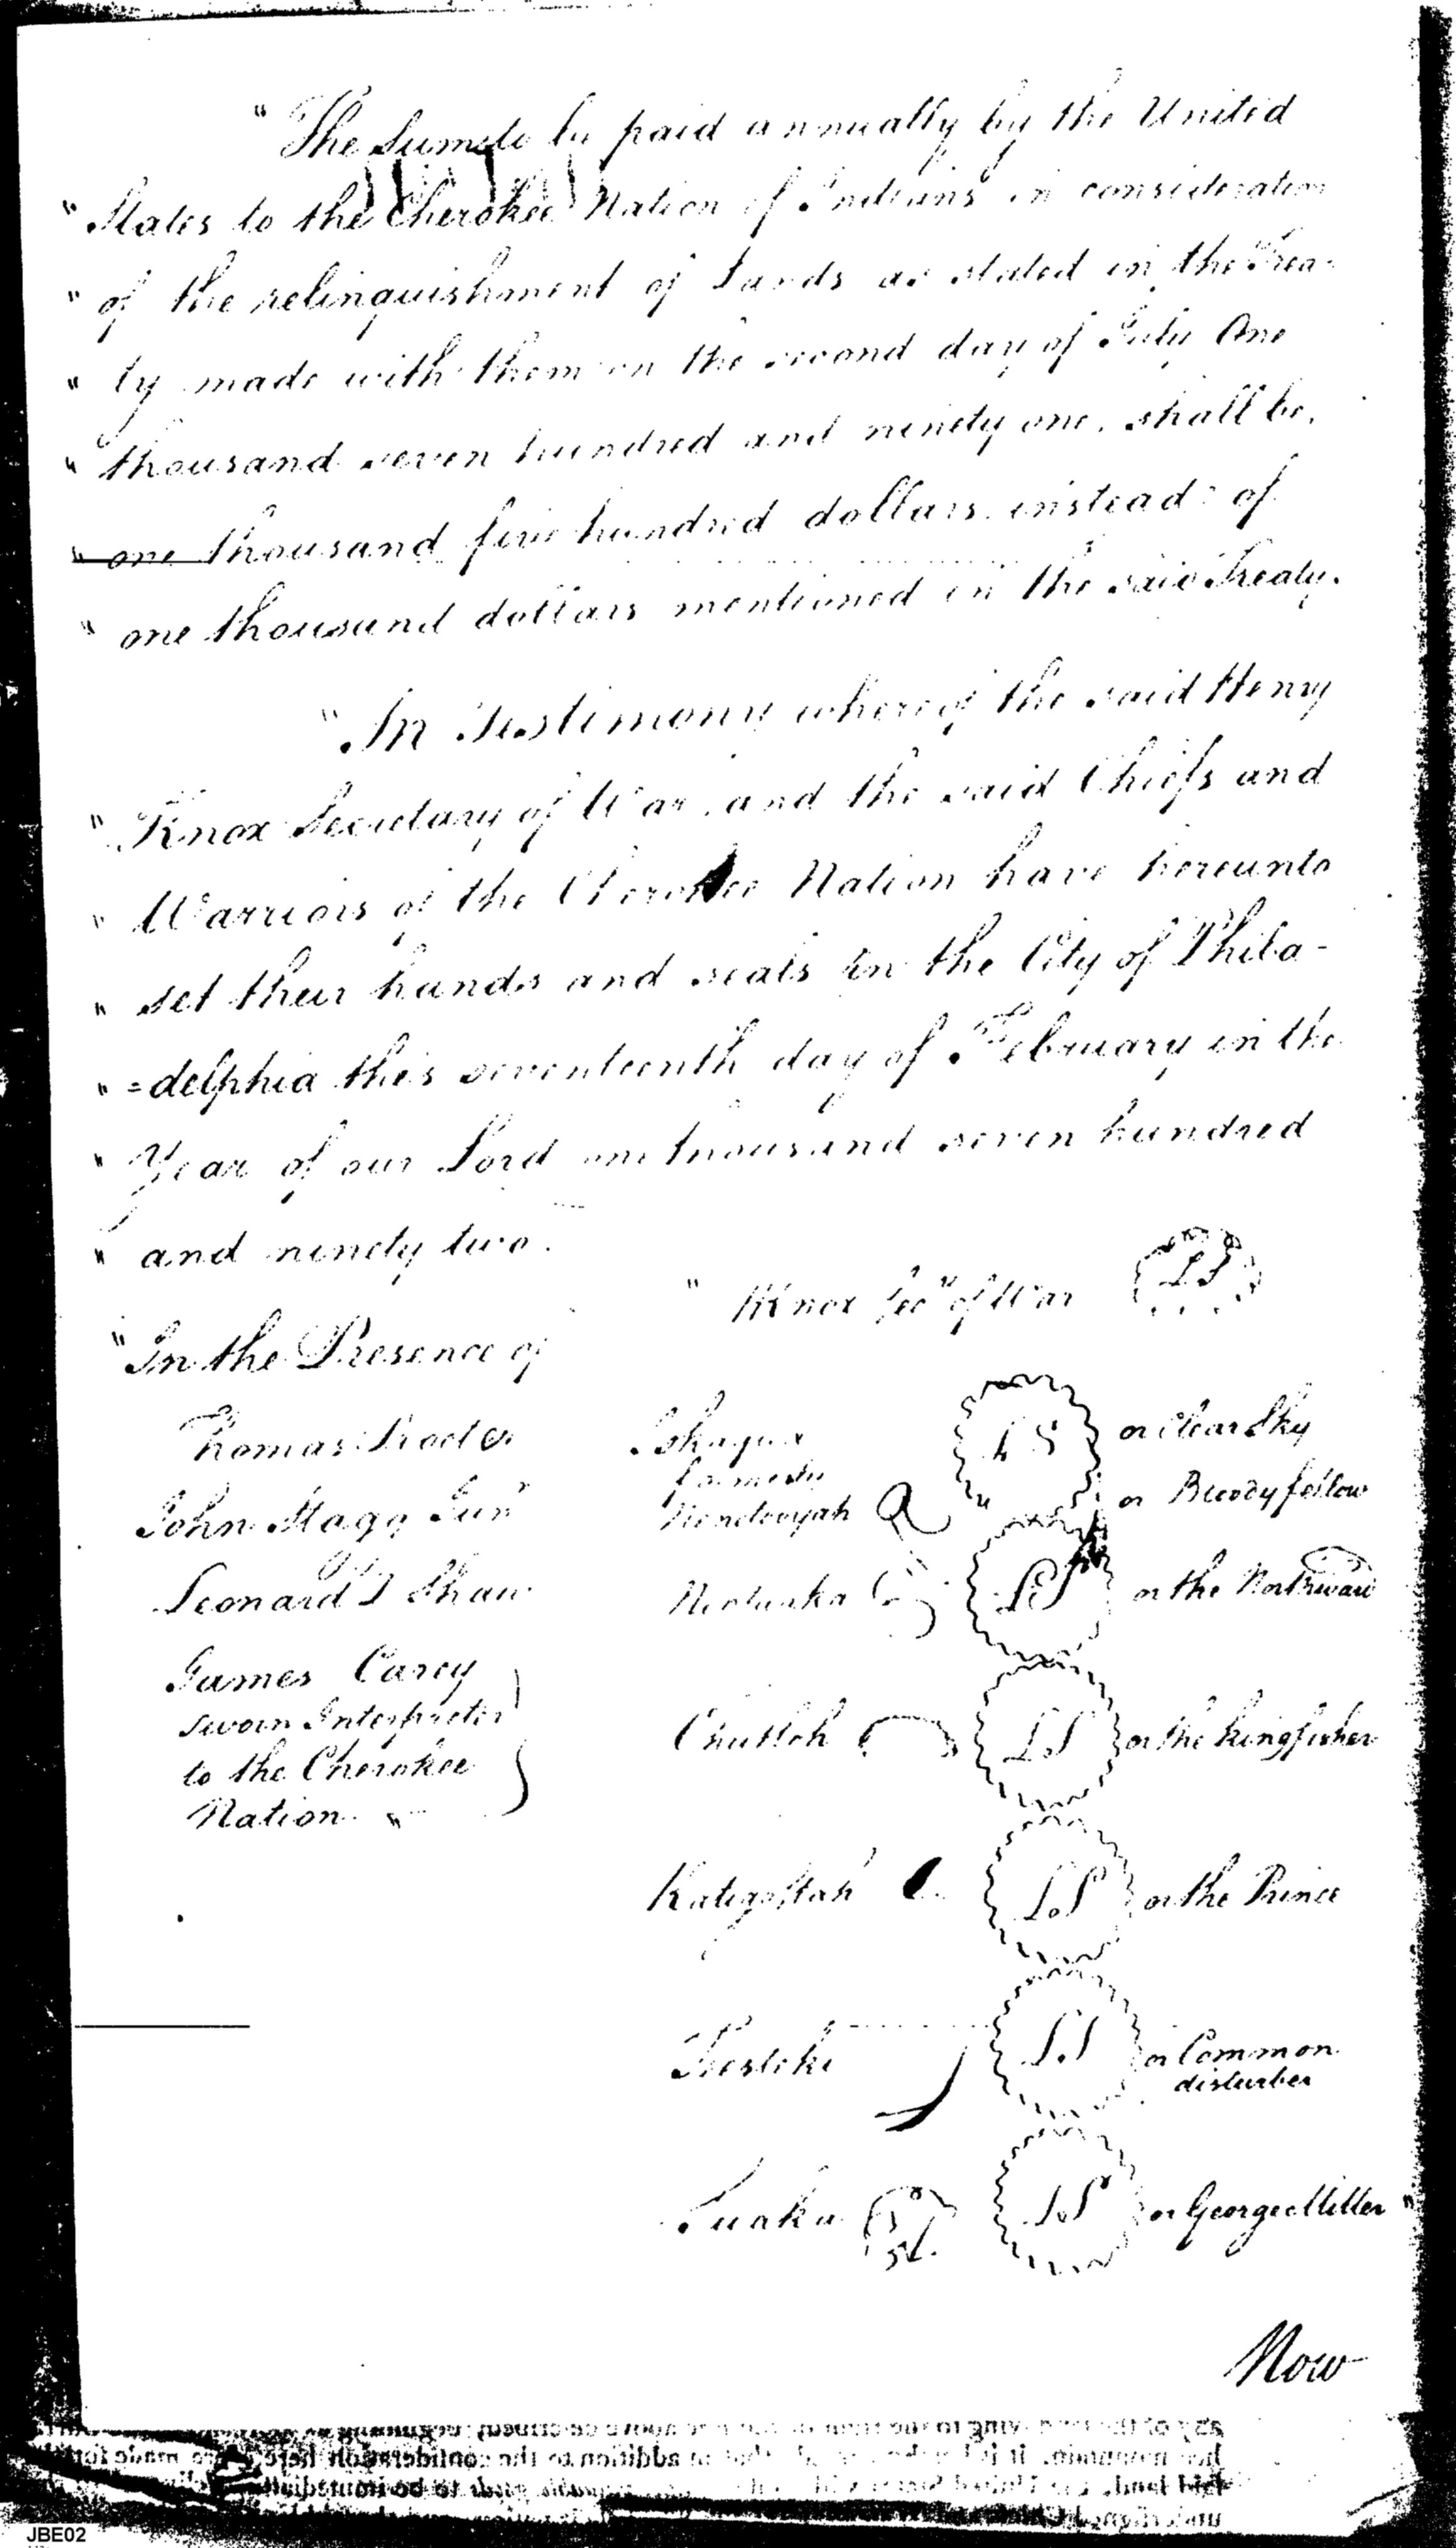 " The Sum to be paid annually by the United
" States to the Cherokee Nation of Indians in consideration
" of the relinquishment of Lands as stated in the Trea-
" ty made with them on the second day of July One
" thousand seven hundred and ninety one, shall be,
" one thousand five hundred dollars instead of
" one thousand dollars mentioned in the said Treaty.
" In Testimony whereof the said Henry
" Knox Secretary of War, and the said Chiefs and
" Warriors of the Cherokee Nation have hereunto
" set their hands and seals in the City of Phila-
" =delphia this seventeenth day of February in the
" Year of our Lord one thousand seven hundred
" and ninety two.
" HKnox Secy of War LS
"In the Presence of
Thomas Procter
John Stagg Junr
Leonard D Shaw
James Carey
sworn Interpreter
to the Cherokee
Nation "
Iskagua LS or Clear Sky
formerly
Nenetooyah or Bloody fellow
Nontuaka LS or the Northward
Chutloh LS or the Kingfisher
Katigoslah LS or the Prince
Teesteke LS or Common
disturber
Suaka LS or George Miller "
Now
JBE02